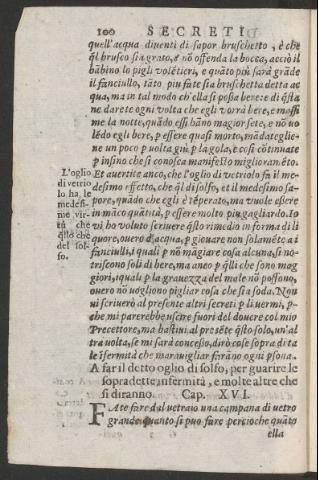 100 SECRETI
quell'acqua diuenti di sapor bruschetto, è che
ql brusco sia grato, e nō offenda la bocca, acciò il
bābino lo pigli volētieri, e quāto più sarà grāde
il fanciullo, tāto piu fate sia bruschetta detta ac
qua, ma in tal modo ch'ella si possa beuere di q̄sta
ne darete ogni volta che egli vorrà bere, e massi
me la notte, quādo essi hāno magior sete, e nō vo
lēdo egli bere, p essere quasi morto, mādateglie-
ne un poco p uolta giù p la gola, e così cōtinuate
p insino che si conosca manifesto miglioramēto.
Et auertite anco, che l'oglio di vetriolo fà il me-
desimo effetto, che q̄l di solfo, et il medesimo sa-
pore, quādo che egli è tēperato, ma vuole essere
in māco quātità, p essere molto piu gagliardo. Io
vi ho voluto scriuere q̄sto rimedio in forma di li
quore, ouero d'acqua, p giouare non solamēte a i
fanciulli, i quali p nō māgiare cosa alcuna, si nō-
triscono soli di bere, ma aneo p q̄lli che sono mag
giori, iquali p la grauezza del male nō possono,
ouero nō uogliono pigliar cosa che sia soda. Non
ui scriuerò al presente altri secreti p li uermi, p-
che mi parerebbe uscire fuori del douere col mio
Precettore, ma bastiui al presēte q̄sto solo, un'al
tra uolta, se mi sarà concesso, dirò cose sopra di ta
le īfermità che marauigliar farāno ogni p̄sona.
L'oglio
di vetrio
lo ha le
medesi-
me vir-
tù che
q̄llo che
del sol-
fo.
A far il detto oglio di solfo, per guarire le
sopradette infermità, e molte altre che
si diranno. Cap. XVI.
FAte fare dal vetraio una campana di uetro
grande quanto si puo fare percioche quāto
ella